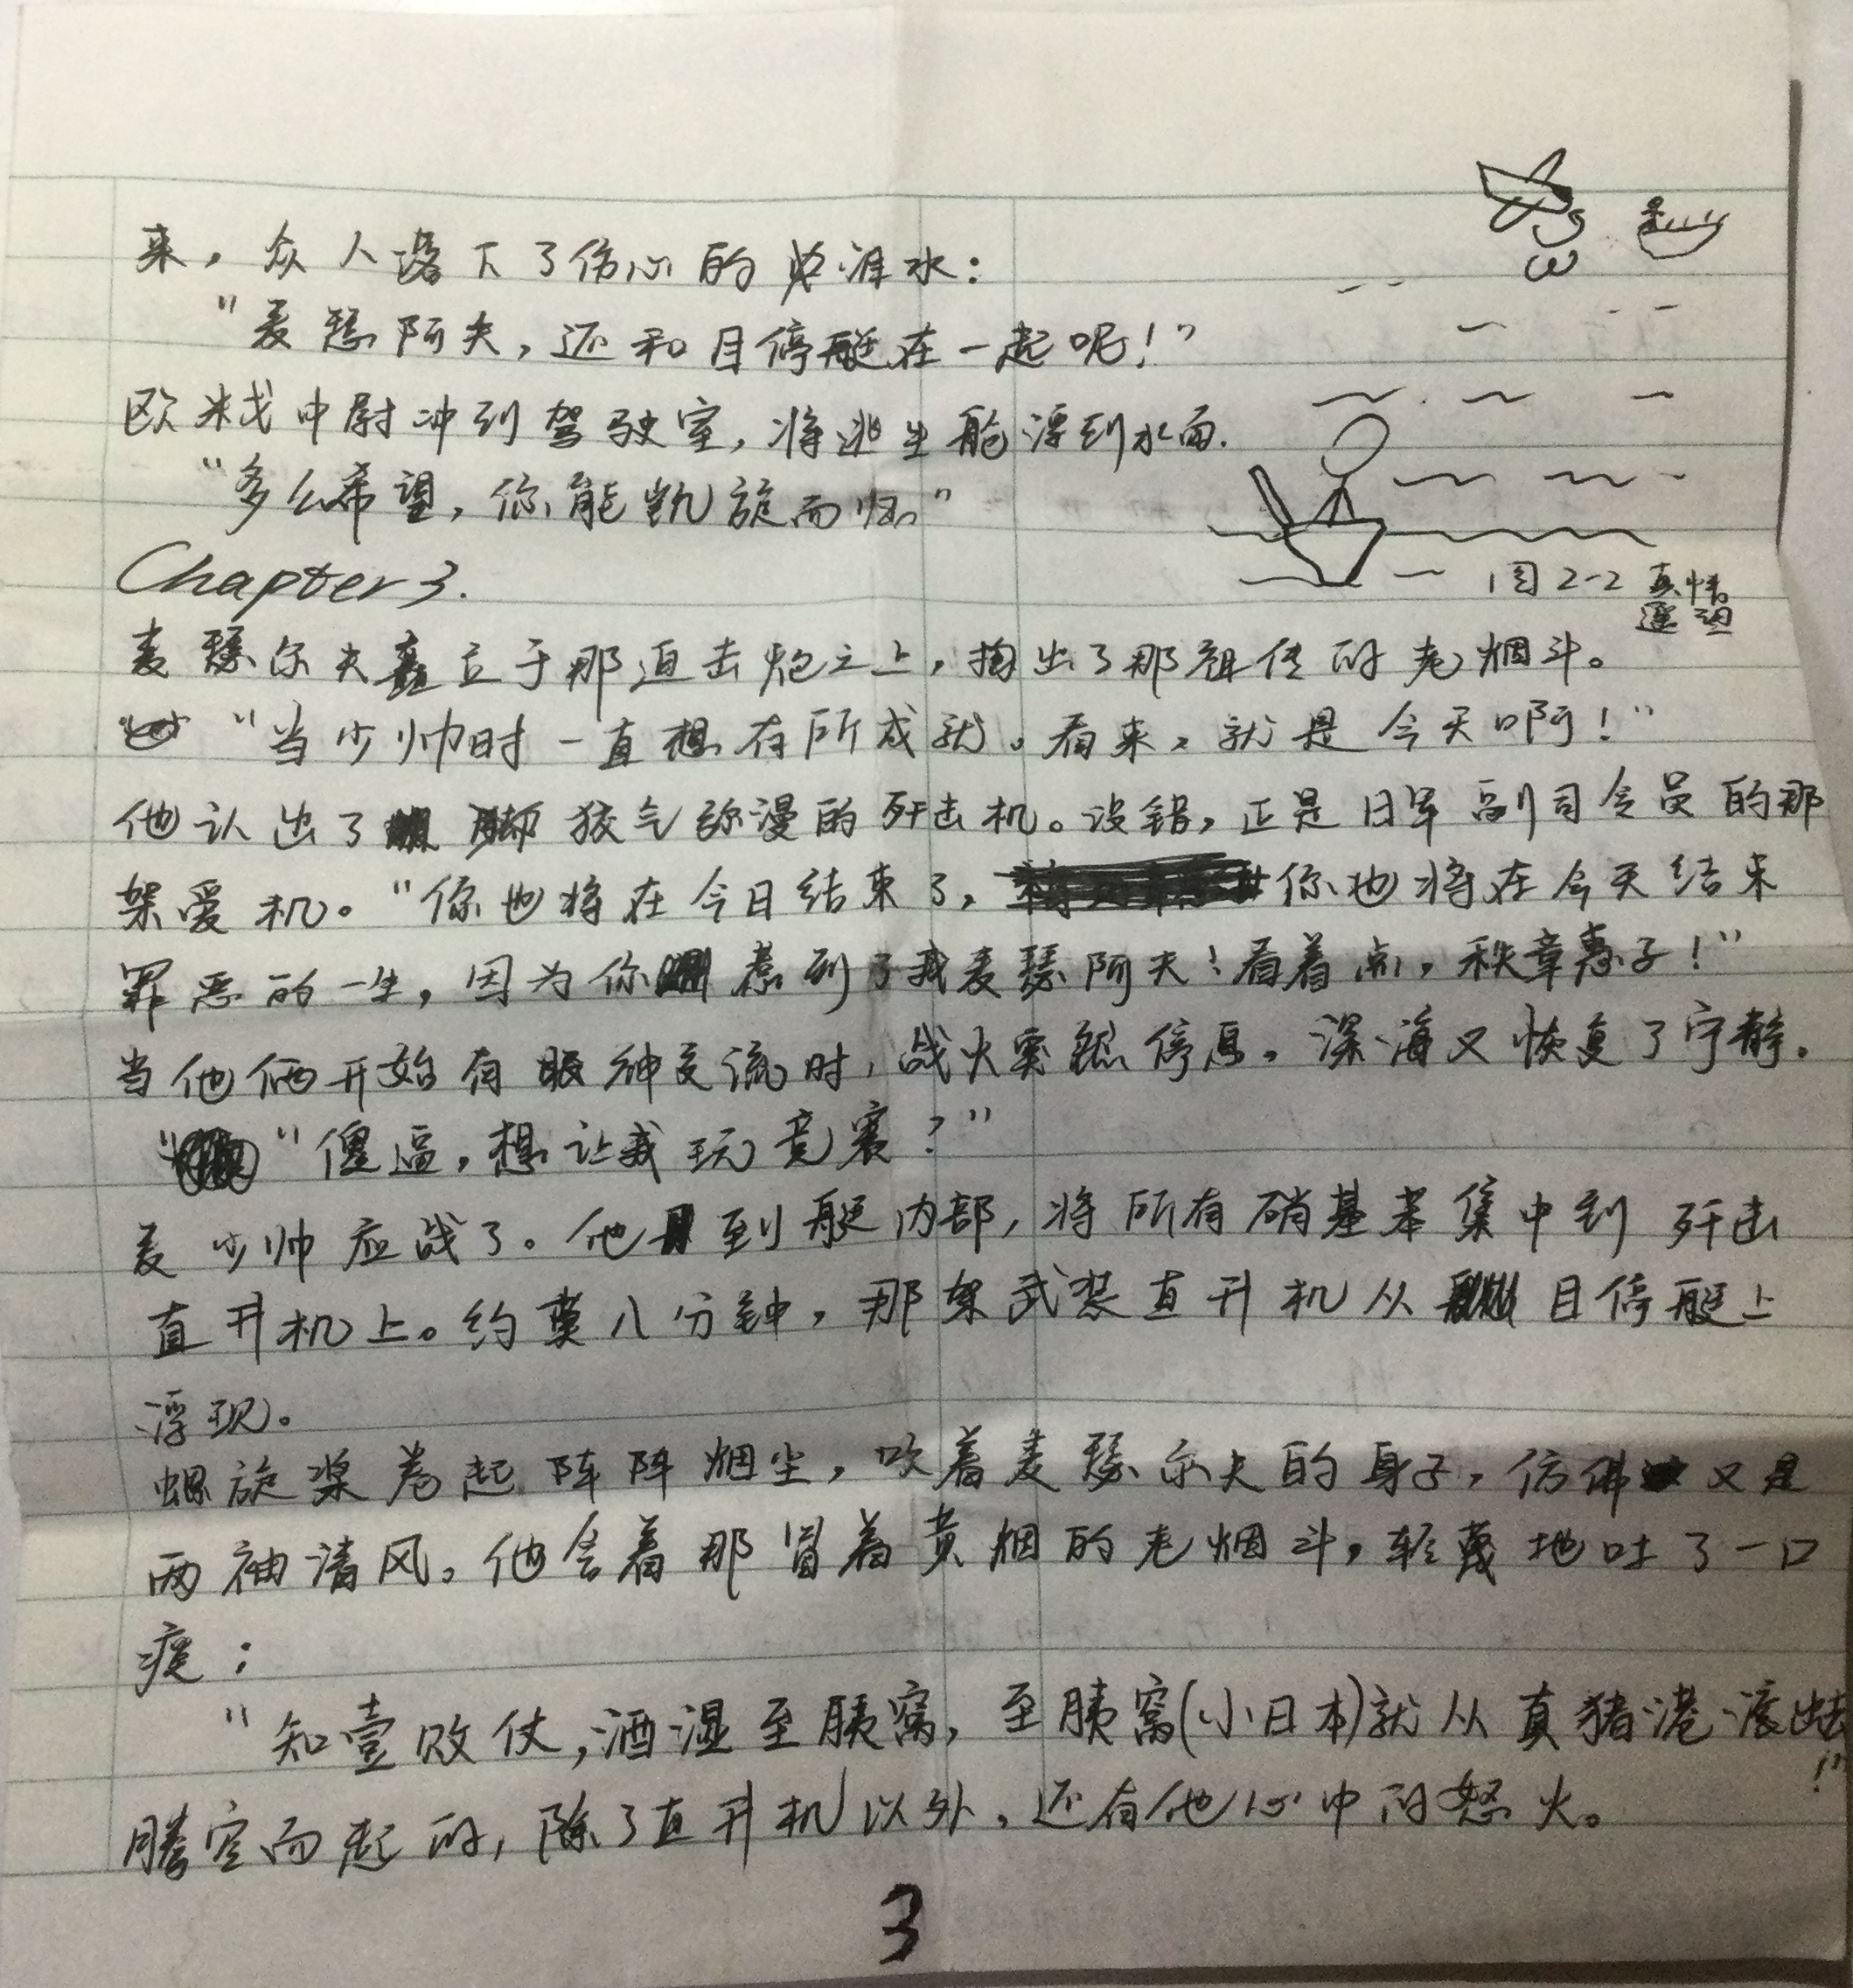 来，众人落下了伤心的泪水：
"麦瑟阿夫，还和目停艇在一起呢！"
欧米戈中尉冲到驾驶室，将逃生舱浮到水面.
"多么希望，你能凯旋而归"
图2-2 真情遥望
Chapter 3.
麦瑟尔夫矗立于那迫击炮之上，掏出了那祖传的老烟斗。
"当少帅时一直想有所成就。看来，就是今天啊！"
他认出了那 狡气弥漫的歼击机。没错，正是日军副司令员的那
架爱机。"你也将在今日结束了，你也将在今天结束
罪恶的一生，因为你惹到了我麦瑟阿夫！看着点，秩章惠子！"
当他俩开始有眼神交流时，战火突然停息。深海又恢复了宁静。
"傻逼，想让我玩竞赛？"
麦少帅应战了。他到艇内部，将所有硝基苯集中到歼击
直升机上。约莫八分钟，那架武装直升机从目停艇上
浮现。
螺旋桨卷起阵阵烟尘，吹着麦瑟尔夫的身子，仿佛又是
两袖清风。他含着那冒着黄烟的老烟斗，轻蔑地吐了一口
痰：
"知壹败仗，酒湿至胰窝，至胰窝(小日本)就从真猪港滚出去！"
腾空而起的，除了直升机以外，还有他心中的怒火。
3